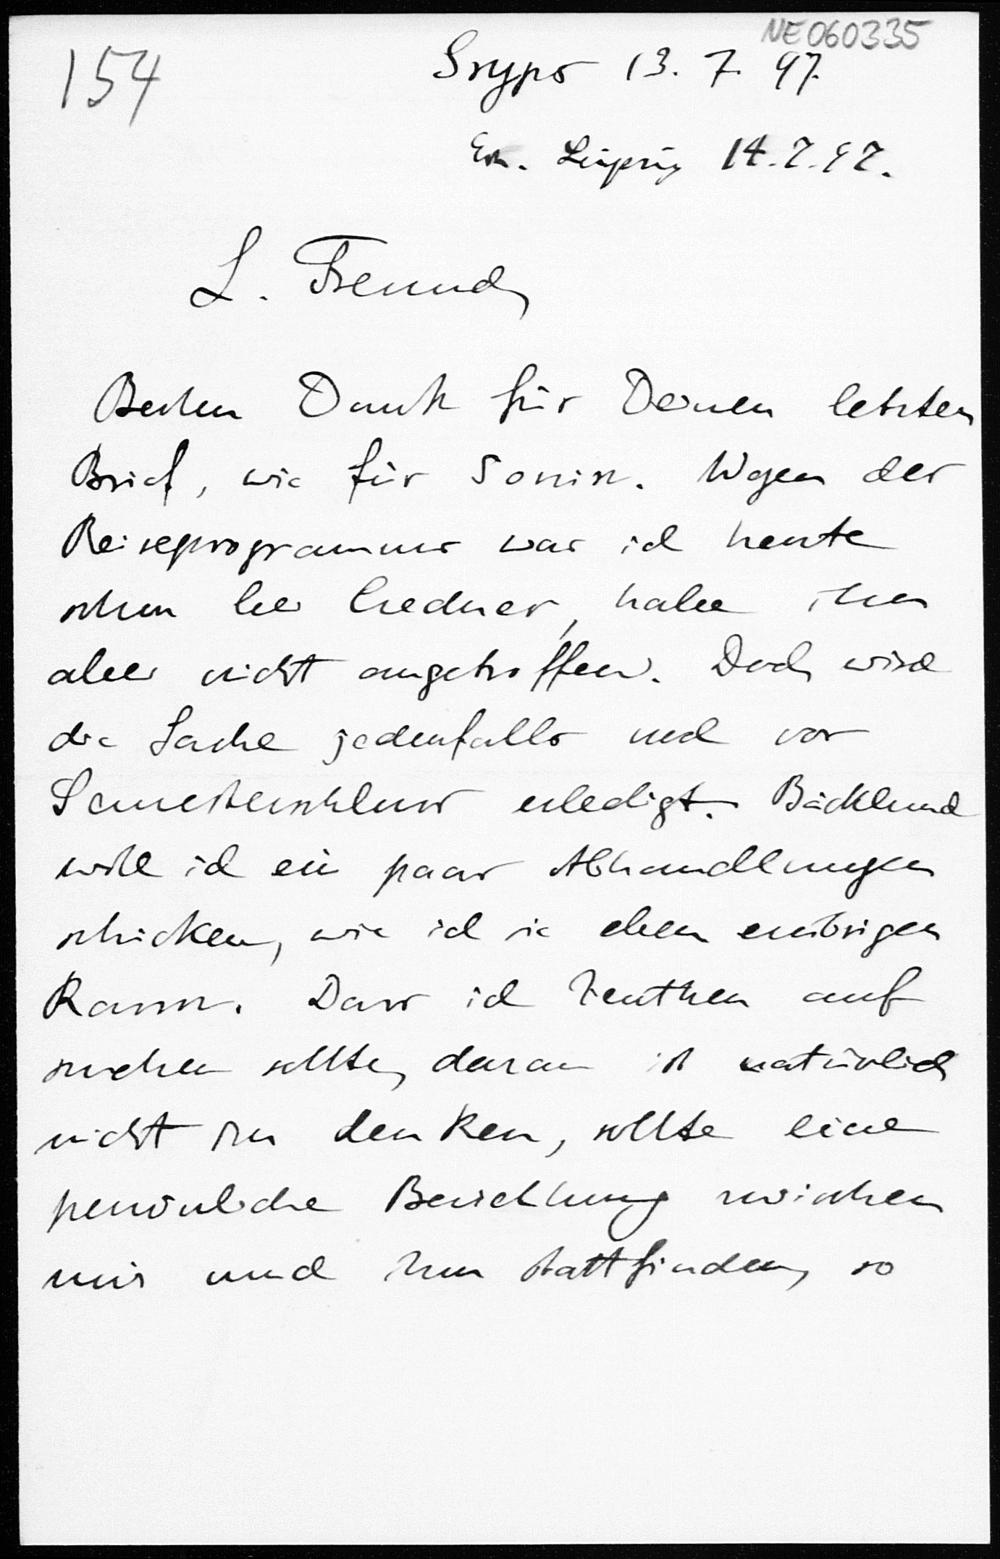 NE060335
154
Gryps 13. 7. 97.
Erh. Leipzig 14.7.97.
L. Freund,
Besten Dank für Deinen letzten
Brief, wie für Sonin. Wegen der
Reiseprogramme war ich heute
schon bei Credner, habe ihn
aber nicht angetroffen. Doch wird
die Sache jedenfalls noch vor
Semesterschluss erledigt. Bäcklund
will ich ein paar Abhandlungen
schicken, wie ich sie eben erübrigen
Kann. Dass ich Zeuthen auf
suchen sollte, daran ist natürlich
nicht zu denken, sollte eine
persönliche Beziehung zwischen
mir und ihm stattfinden, so